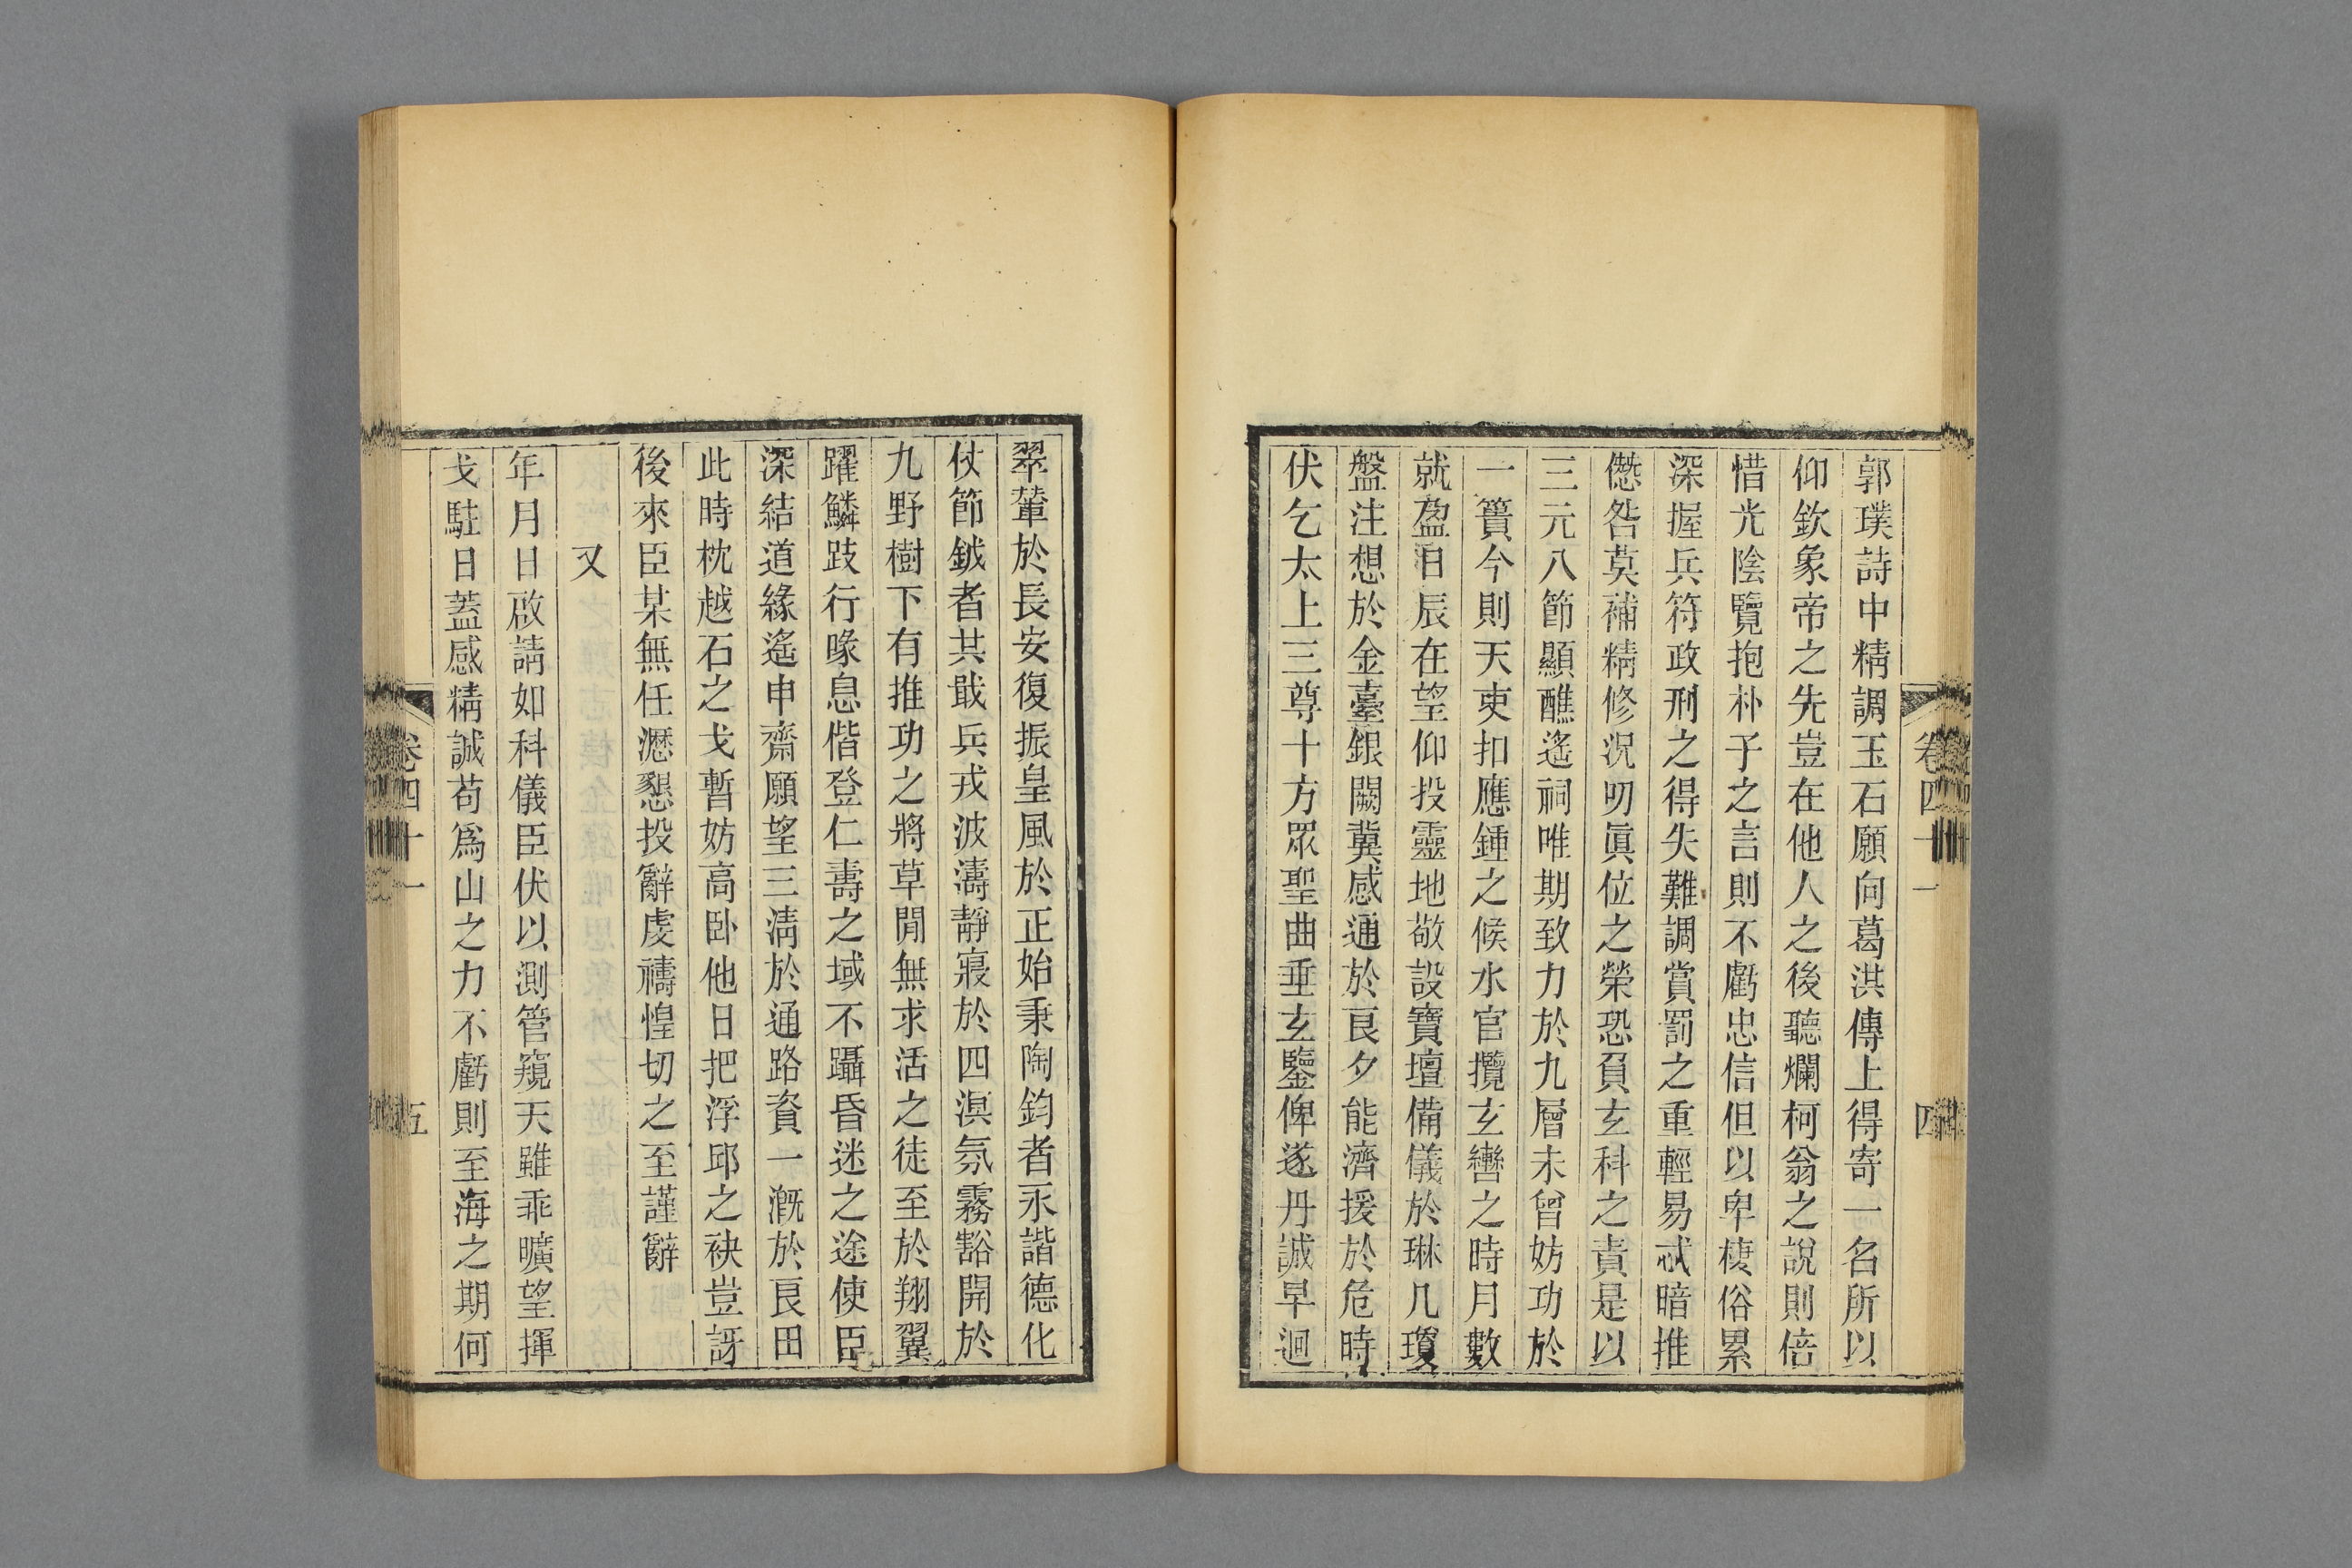 郭璞詩中精調玉石願向葛洪傳上得寄一名所以
仰欽象帝之先豈在他人之後聽爛柯翁之說則倍
惜光陰覽抱朴子之言則不虧忠信但以卑棲俗累
深握兵符政刑之得失難調賞罰之重輕易忒暗推
僽咎莫補精修況叨眞位之榮恐負玄科之責是以
三元八節顯醮遙祠唯期致力於九層未曾妨功於
一簣今則天吏扣應鍾之候水官攬玄轡之時月數
就盈日辰在望仰投靈地敬設寶壇備儀於琳几瓊
盤注想於金臺銀闕冀感通於良夕能濟援於危時
伏乞太上三尊十方眾聖曲垂玄鑒俾遂丹誠早迴
卷四十一
四
翠輦於長安復振皇風於正始秉陶鈞者永諧德化
仗節鉞者共戢兵戎波濤靜寢於四溟氛霧豁開於
九野樹下有推功之將草閒無求活之徒至於翔翼
躍鱗跂行喙息偕登仁壽之域不躡昏迷之途使臣
深結道緣遙申齋願望三淸於通路資一漑於良田
此時枕越石之戈暫妨高卧他日把浮邱之袂豈訝
後來臣某無任瀝懇投辭虔禱惶切之至謹辭
又
年月日啟請如科儀臣伏以測管窺天雖乖曠望揮
戈駐日蓋感精誠苟爲山之力不虧則至海之期何
卷四十一
五